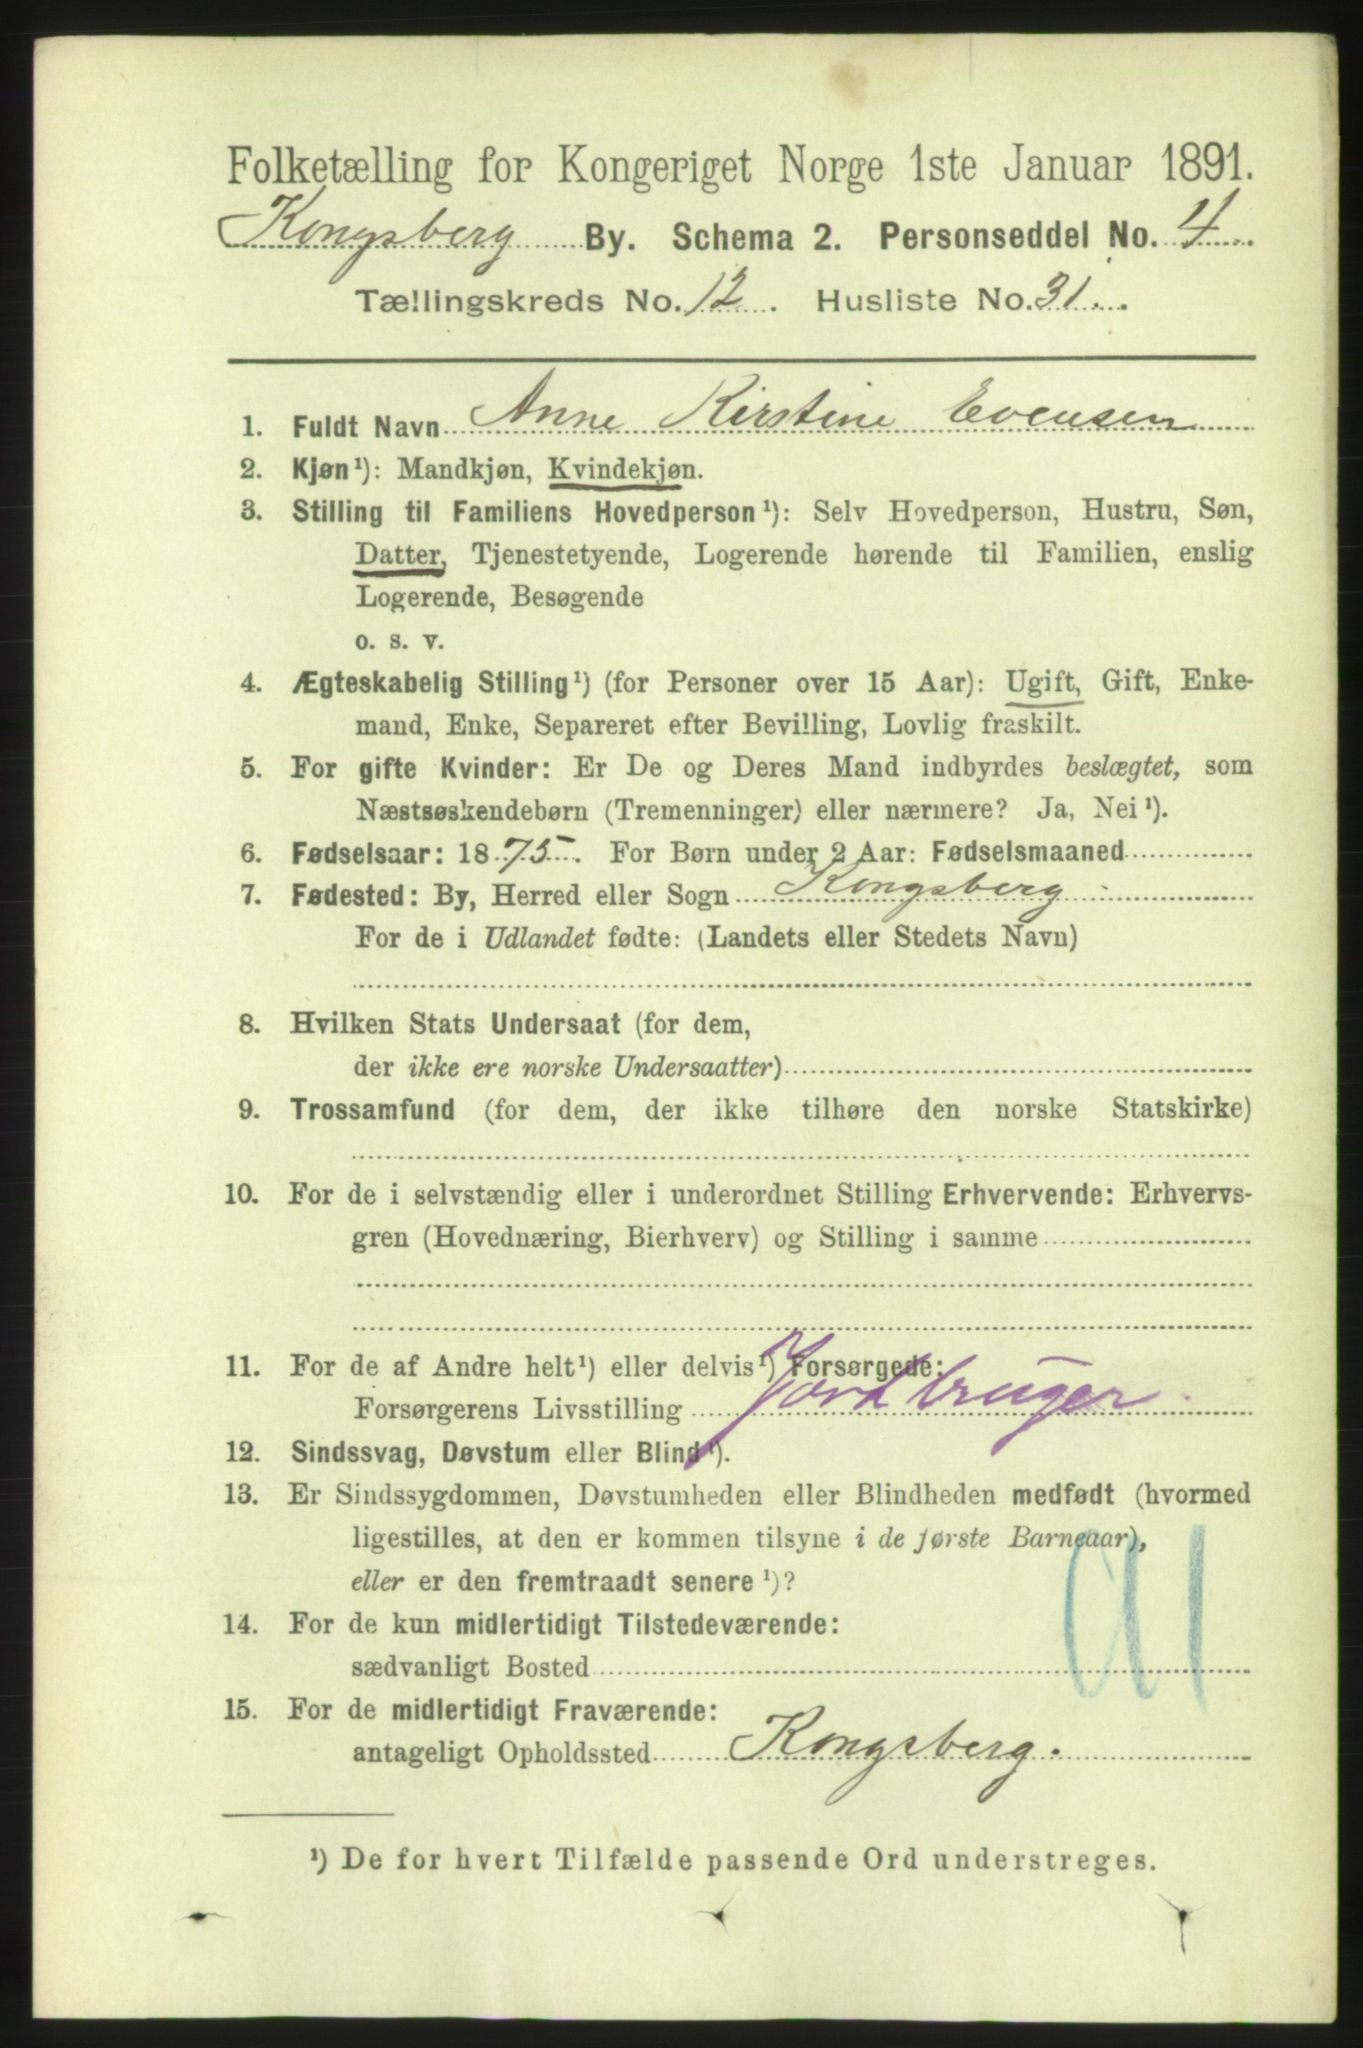 Folketælling for Kongeriget Norge 1ste Januar 1891.
Kongsberg By. Schema 2. Personseddel No. 4
Tællingskreds No. 12. Husliste No. 31.
1. Fuldt Navn Anne Kirstine Evensen
2. Kjøn¹): Mandkjøn, Kvindekjøn.
3. Stilling til Familiens Hovedperson¹): Selv Hovedperson, Hustru, Søn,
Datter, Tjenestetyende, Logerende hørende til Familien, enslig
Logerende, Besøgende
o. s. v.
4. Ægteskabelig Stilling¹) (for Personer over 15 Aar): Ugift, Gift, Enke-
mand, Enke, Separeret efter Bevilling, Lovlig fraskilt.
5. For gifte Kvinder: Er De og Deres Mand indbyrdes beslægtet, som
Næstsøskendebørn (Tremenninger) eller nærmere? Ja, Nei¹).
6. Fødselsaar: 1875. For Børn under 2 Aar: Fødselsmaaned
7. Fødested: By, Herred eller Sogn Kongsberg
For de i Udlandet fødte: (Landets eller Stedets Navn)
8. Hvilken Stats Undersaat (for dem,
der ikke ere norske Undersaatter)
9. Trossamfund (for dem, der ikke tilhøre den norske Statskirke)
10. For de i selvstændig eller i underordnet Stilling Erhvervende: Erhvervs-
gren (Hovednæring, Bierhverv) og Stilling i samme
11. For de af Andre helt¹) eller delvis¹) Forsørgede:
Forsørgerens Livsstilling Jordbruger
12. Sindssvag, Døvstum eller Blind¹).
13. Er Sindssygdommen, Døvstumheden eller Blindheden medfødt (hvormed
ligestilles, at den er kommen tilsyne i de første Barneaar),
eller er den fremtraadt senere¹)?
14. For de kun midlertidigt Tilstedeværende:
sædvanligt Bosted
15. For de midlertidigt Fraværende:
antageligt Opholdssted Kongsberg.
¹) De for hvert Tilfælde passende Ord understreges.